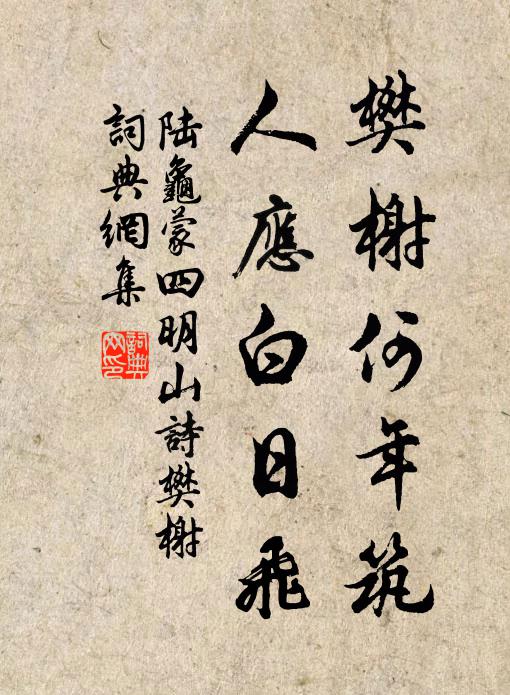 樊榭何年筑
人應白日飛
陆龜蒙四明山詩樊榭
詞典網集
詞典
网印